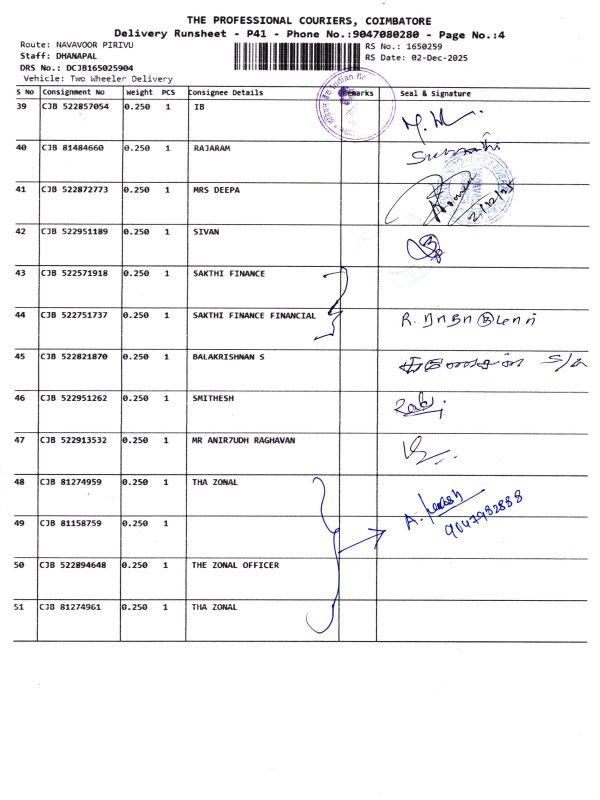 THE PROFESSIONAL COURIERS, COIMBATORE
Delivery Runsheet - P41 - Phone No.:9047080280 - Page No.:4
Route: NAVAVOOR PIRIVU
RS No.: 1650259
Staff: DHANAPAL
RS Date: 02-Dec-2025
DRS No.: DCJB165025904
Vehicle: Two Wheeler Delivery
S No Consignment No Weight PCS Consignee Details Remarks Seal & Signature
39 CJB 522857054 0.250 1 IB
40 CJB 81484660 0.250 1 RAJARAM
41 CJB 522872773 0.250 1 MRS DEEPA 2/12/25
42 CJB 522951189 0.250 1 SIVAN
43 CJB 522571918 0.250 1 SAKTHI FINANCE
44 CJB 522751737 0.250 1 SAKTHI FINANCE FINANCIAL
45 CJB 522821870 0.250 1 BALAKRISHNAN S
46 CJB 522951262 0.250 1 SMITHESH
47 CJB 522913532 0.250 1 MR ANIR7UDH RAGHAVAN
48 CJB 81274959 0.250 1 THA ZONAL
9047982888
49 CJB 81158759 0.250 1
50 CJB 522894648 0.250 1 THE ZONAL OFFICER
51 CJB 81274961 0.250 1 THA ZONAL